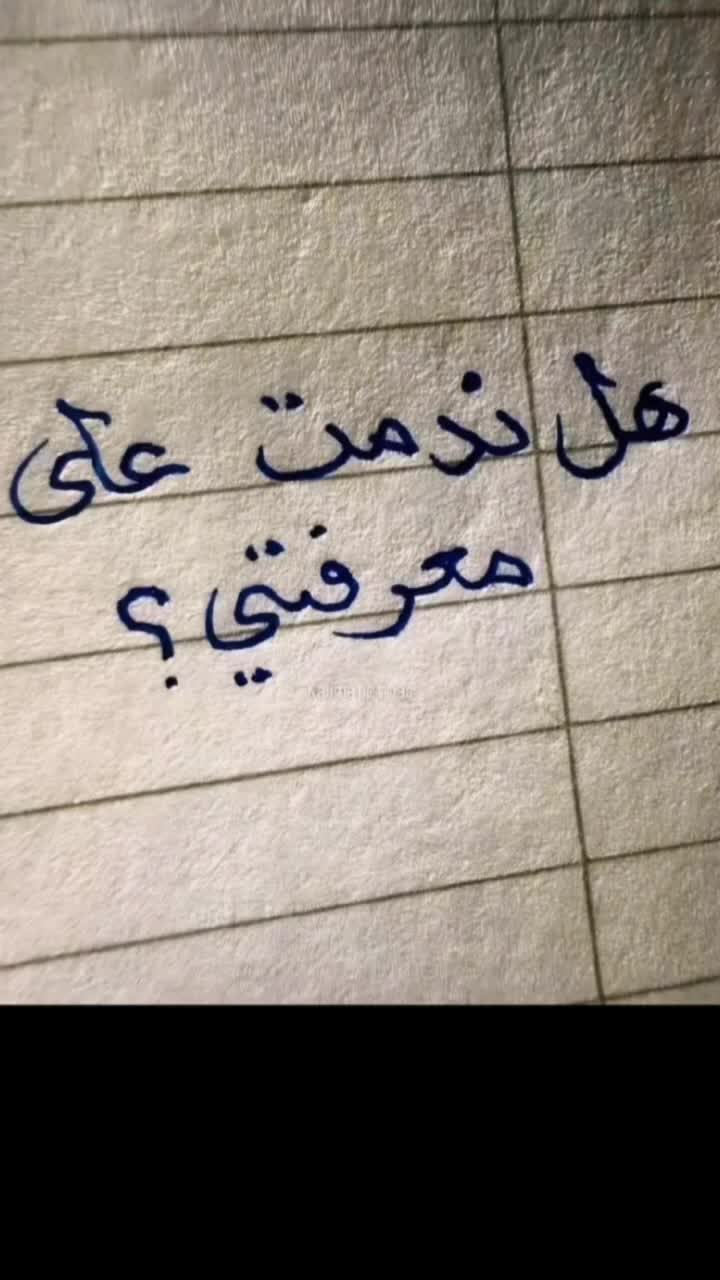 هل ندمت على
معرفتي؟